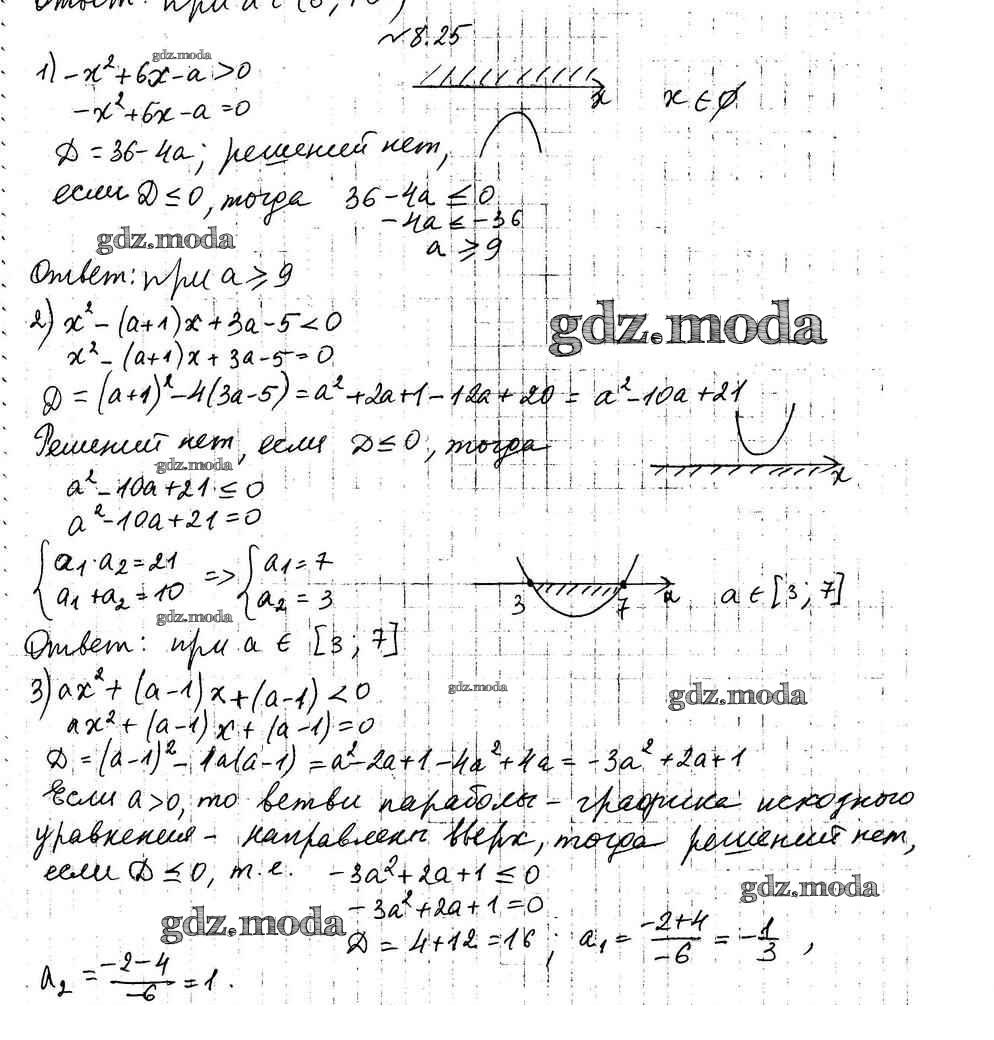 Ответ: при a ∈ (
№ 8.25
gdz.moda
1) -x²+6x-a>0
-x²+6x-a=0
x
x ∈ ∅
D = 36-4a; решений нет,
если D ≤ 0, тогда 36-4a ≤ 0
-4a ≤ -36
gdz.moda
a ≥ 9
Ответ: при a ≥ 9
2) x²-(a+1)x+3a-5<0
gdz.moda
x²-(a+1)x+3a-5=0
D = (a+1)²-4(3a-5)=a²+2a+1-12a+20 = a²-10a+21
Решений нет, если D ≤ 0, тогда
gdz.moda
x
a²-10a+21 ≤ 0
a²-10a+21=0
{ a₁·a₂=21 => { a₁=7
a₁+a₂=10 a₂=3
3 7 a a ∈ [3; 7]
gdz.moda
Ответ: при a ∈ [3; 7]
3) ax²+(a-1)x+(a-1)<0
gdz.moda
gdz.moda
ax²+(a-1)x+(a-1)=0
D = (a-1)²-4a(a-1) = a²-2a+1-4a²+4a = -3a²+2a+1
Если a>0, то ветви параболы - графика исходного
уравнения - направлены вверх, тогда решений нет,
если D ≤ 0, т.е. -3a²+2a+1 ≤ 0
gdz.moda
-3a²+2a+1=0
gdz.moda
D = 4+12=16; a₁ = (-2+4)/(-6) = -1/3,
a₂ = (-2-4)/(-6) = 1.